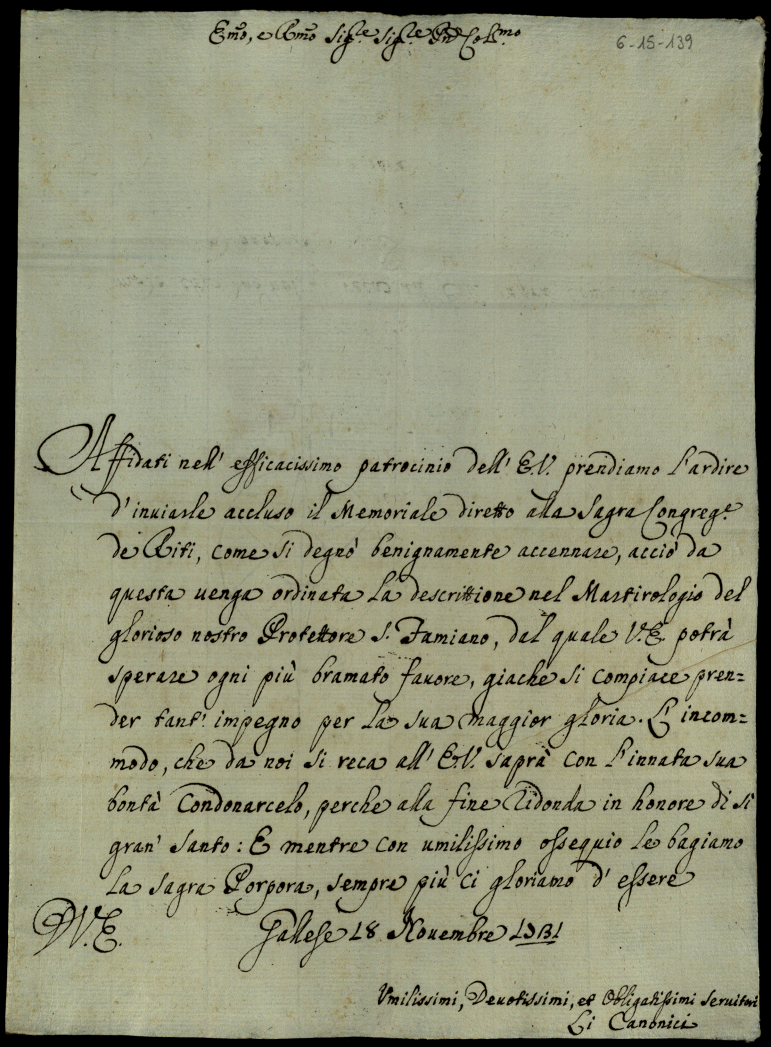 Emo, e Rmo Sigre Sigre Pne Colmo
6-15-139
Affidati nell' efficacissimo patrocinio dell' E.V. prendiamo l'ardire
d'inuiarle accluso il Memoriale diretto alla Sagra Congrege
de Riti, come si degnò benignamente accennare, acciò da
questa uenga ordinata la descrittione nel Martirologio del
glorioso nostro Protettore S. Famiano, dal quale V.E. potrà
sperare ogni più bramato fauore, giache si compiace pren=
der tant' impegno per la sua maggior gloria. L'incom=
modo, che da noi si reca all' E.V. saprà con l'innata sua
bontà condonarcelo, perche alla fine ridonda in honore di sì
gran' Santo: E mentre con umilissimo ossequio le bagiamo
la sagra Porpora, sempre più ci gloriamo d' essere
D.V.E. Gallese 18 Nouembre 1731
Vmilissimi, Deuotissimi, et Obligatissimi Seruitori
Li Canonici